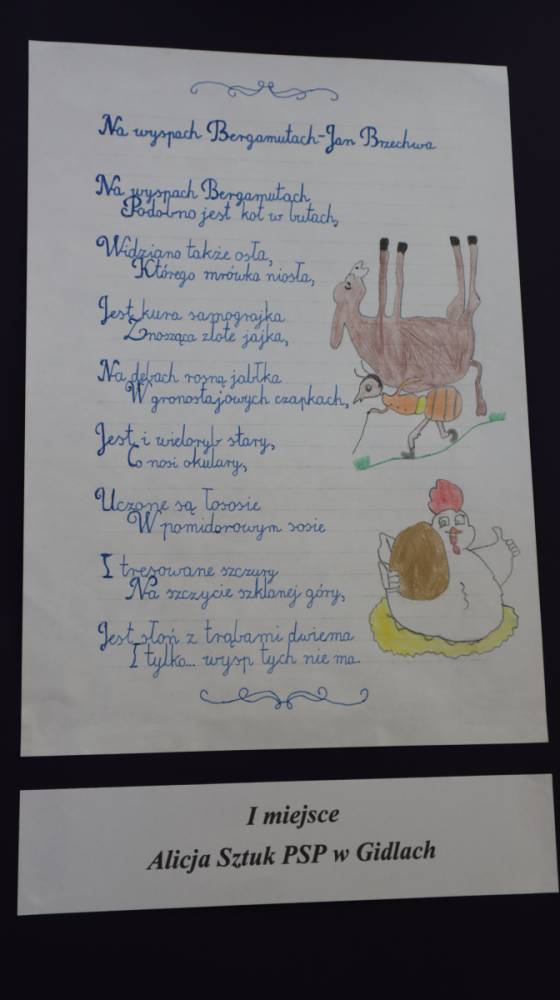 Na wyspach Bergamutach-Jan Brzechwa
Na wyspach Bergamutach
Podobno jest kot w butach,
Widziano także osła,
Którego mrówka niosła,
Jest kura samograjka
Znosząca złote jajka,
Na dębach rosną jabłka
W gronostajowych czapkach,
Jest i wieloryb stary,
Co nosi okulary,
Uczone są łososie
W pomidorowym sosie
I tresowane szczury
Na szczycie szklanej góry,
Jest słoń z trąbami dwiema
I tylko... wysp tych nie ma.
I miejsce
Alicja Sztuk PSP w Gidlach